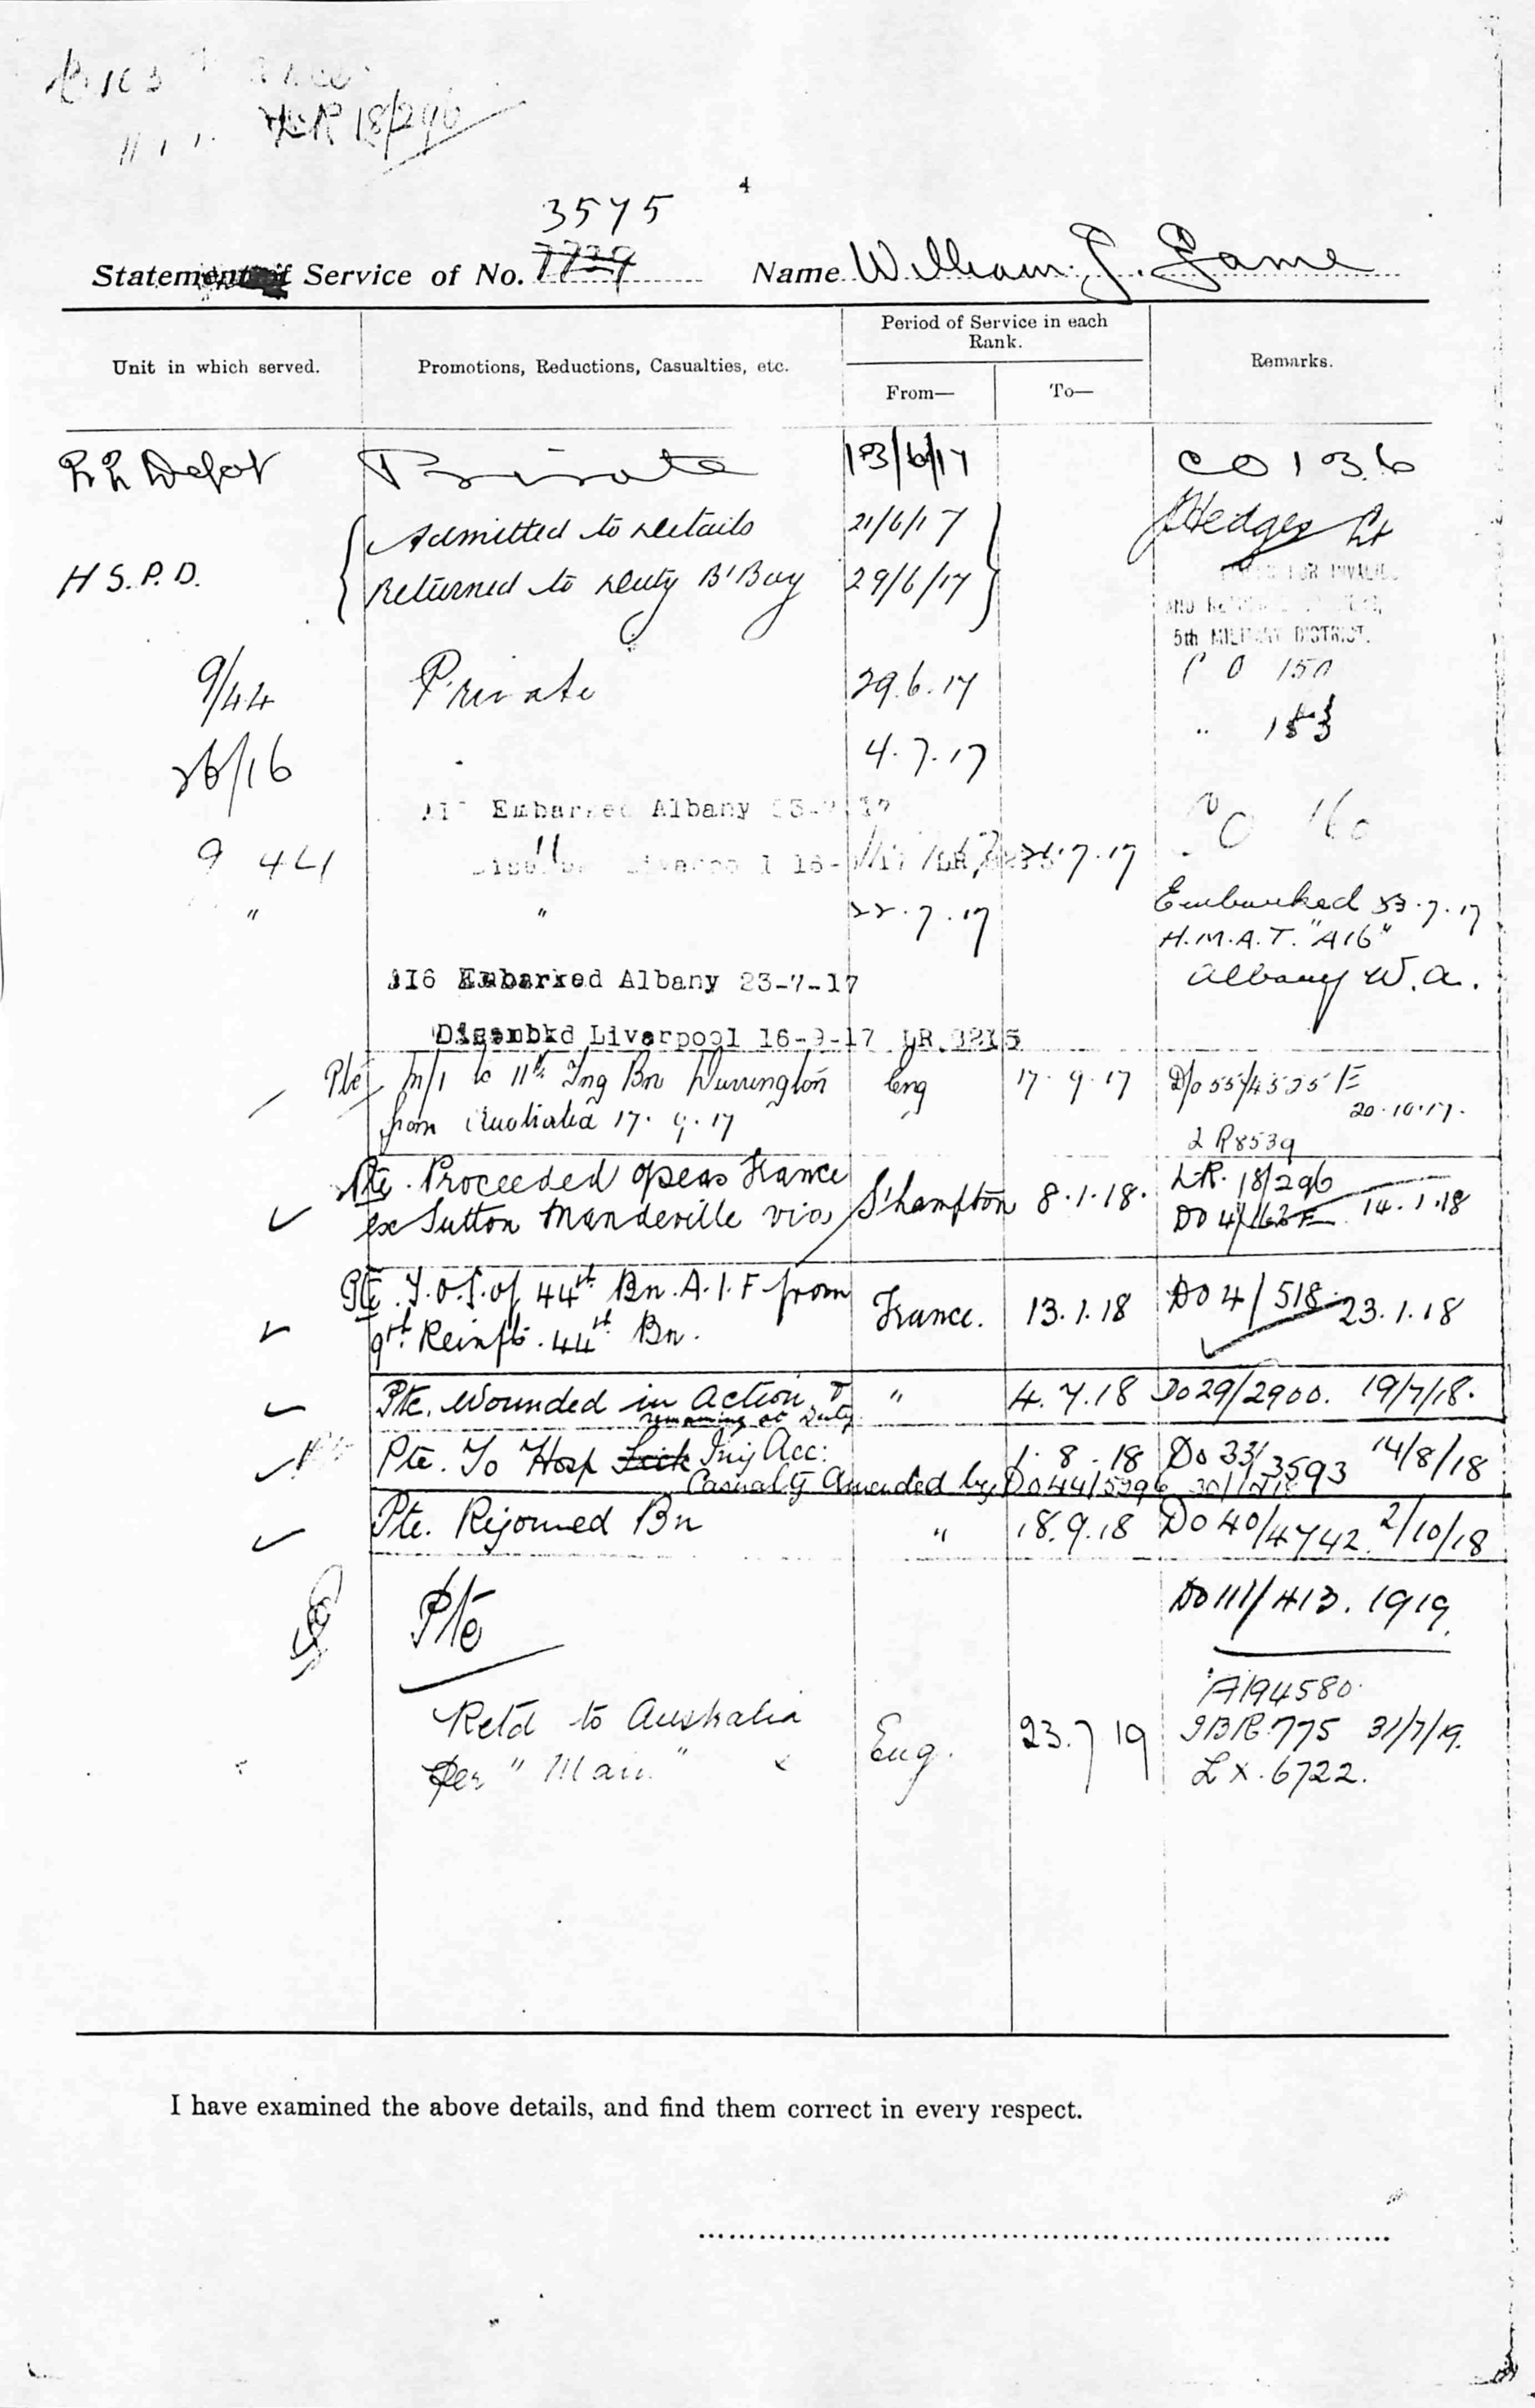 LR 18/296
4
3575
7729
Statement of Service of No. Name William J. Game
Period of Service in each Rank.
Unit in which served. Promotions, Reductions, Casualties, etc. From— To— Remarks.
Depot Private 13/6/17 CO 136
Admitted to Details 21/6/17 Hedges Lt
H S.P.D. Returned to Duty B'Boy 29/6/17
5th MILITARY DISTRICT.
9/44 Private 29.6.17 C O 150
26/16 4.7.17 " 153
Embarked Albany
9 44 " 21.7.17 CO 160
" " 22.7.17 Embarked 23.7.17
H.M.A.T. "A16"
A16 Embarked Albany 23-7-17 Albany W.A.
Disembkd Liverpool 16-9-17 LR 8215
Pte M/I to 11th Tng Bn Durrington Eng 17.9.17 D/o 55/4525 E
from Australia 17.9.17 20.10.17.
LR8539
Pte. Proceeded o/seas France LR. 18/296
ex Sutton Mandeville via S'hampton 8.1.18. DO 4/163 E 14.1.18
Pte. T.O.S. of 44th Bn. A.I.F from
9th Reinfts. 44th Bn. France. 13.1.18 DO 4/518 23.1.18
Pte. Wounded in Action " 4.7.18 Do 29/2900. 19/7/18.
remaining at Duty
Pte. To Hosp Sick Inj Acc: 1.8.18 Do 33/3593 14/8/18
Casualty Amended by Do 44/5296
Pte. Rejoined Bn " 18.9.18 Do 40/4742 2/10/18
Pte DO 111/413. 1919.
A194580.
Retd to Australia Eng. 23.7.19 IBR.775 31/7/19.
Per "Main" LX.6722.
I have examined the above details, and find them correct in every respect.